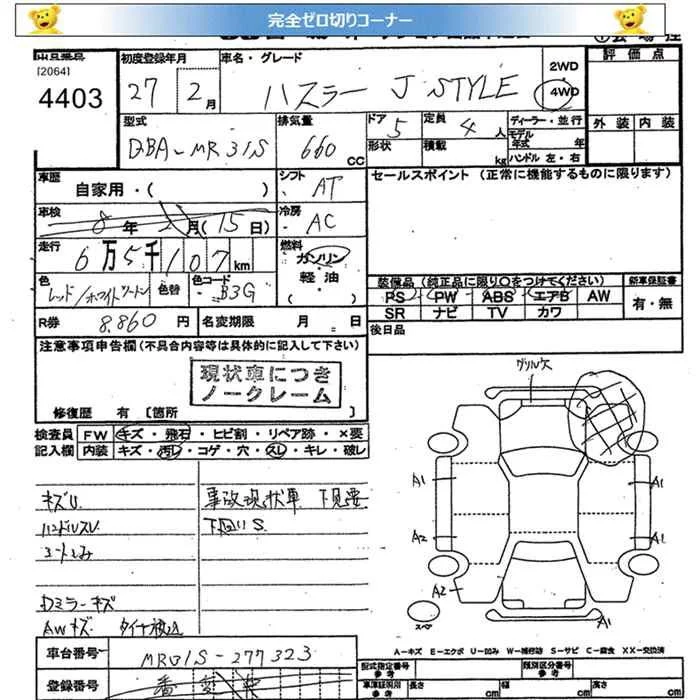 完全ゼロ切りコーナー
[2064]
4403
初度登録年月
27 2月
車名・グレード
ハスラー J STYLE
2WD
4WD
評価点
外装 内装
型式
DBA-MR31S
排気量
660 CC
ドア 5
形状
定員 4 人
積載 kg
ディーラー・並行
モデル年式 年
ハンドル 左・右
車歴
自家用・( )
シフト
AT
セールスポイント (正常に機能するものに限ります)
車検
8年2月(15日)
冷房
AC
走行
6万5千107km
燃料
ガソリン
軽油
( )
色
レッド/ホワイトツートン
色替
色コード
B3G
装備品 (純正品に限り○をつけてください)
PS PW ABS エアB AW
SR ナビ TV カワ
新車保証書
有・無
R券 8,860 円
名変期限 月 日
後日品
注意事項申告欄(不具合内容等は具体的に記入して下さい)
現状車につき
ノークレーム
修復歴 有 〔箇所 〕
検査員
記入欄
FW キズ・飛石・ヒビ割・リペア跡・×要
内装 キズ・汚レ・コゲ・穴・スレ・キレ・破レ
グリル欠
A1
A1
A2
A1
A2
A1
スペア
キズU
ハンドルスレ
シートしみ
Dミラーキズ
AWキズ タイヤ積込
事故現状車 下見要
下回りS
A-キズ E-エクボ U-凹み W-補修跡 S-サビ C-腐食 XX-交換済
車台番号
MR31S-277323
登録番号
型式指定番号
参考
類別区分番号
参考
車庫証明用
参考
長さ cm
幅 cm
高さ cm